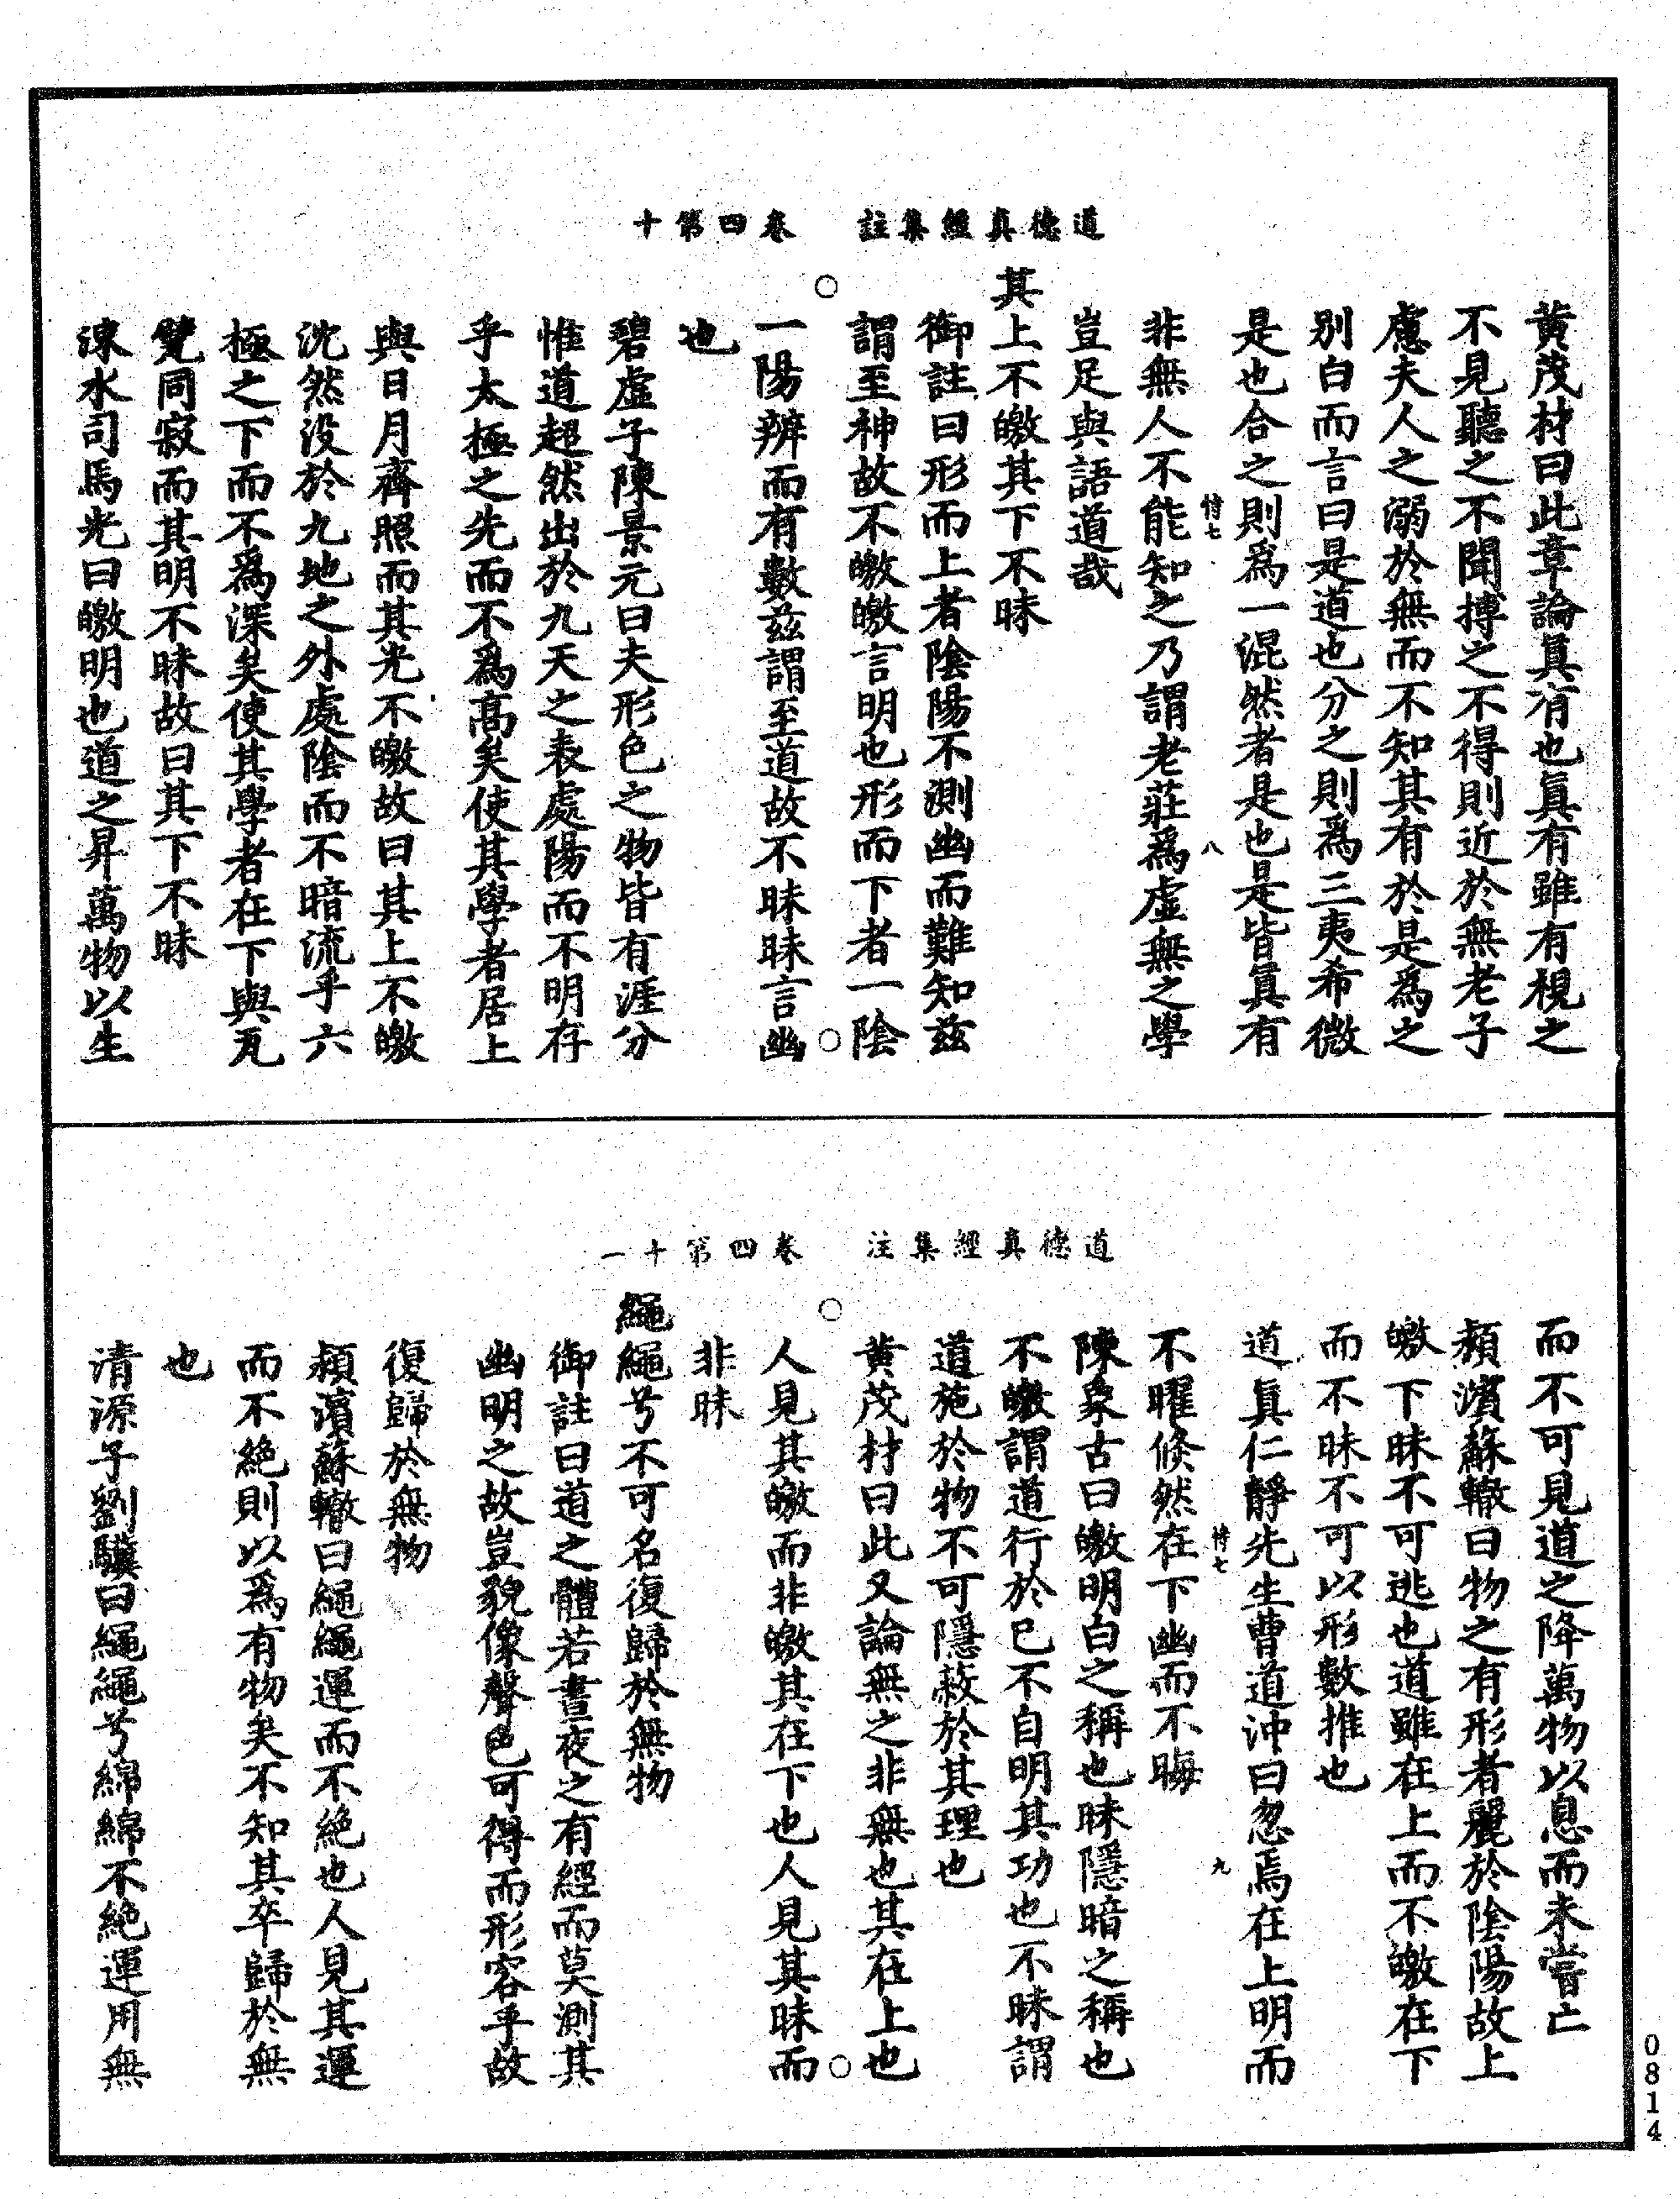 道德真經集註　卷四第十
黃茂材曰此章論眞有也眞有雖有視之
不見聽之不聞搏之不得則近於無老子
慮夫人之溺於無而不知其有於是爲之
別白而言曰是道也分之則爲三夷希微
是也合之則爲一混然者是也是皆眞有
恃七　八
非無人不能知之乃謂老莊爲虛無之學
豈足與語道哉
其上不皦其下不昧
御註曰形而上者陰陽不測幽而難知兹
謂至神故不皦皦言明也形而下者一陰
一陽辨而有數兹謂至道故不昧昧言幽
也
碧虛子陳景元曰夫形色之物皆有涯分
惟道超然出於九天之表處陽而不明存
乎太極之先而不爲高矣使其學者居上
與日月齊照而其光不皦故曰其上不皦
沈然没於九地之外處陰而不暗流乎六
極之下而不爲深矣使其學者在下與瓦
甓同寂而其明不昧故曰其下不昧
涑水司馬光曰皦明也道之昇萬物以生
道德真經集注　卷四第十一
而不可見道之降萬物以息而未嘗亡
潁濱蘇轍曰物之有形者麗於陰陽故上
皦下昧不可逃也道雖在上而不皦在下
而不昧不可以形數推也
道真仁靜先生曹道沖曰忽焉在上明而
恃七　九
不曜倏然在下幽而不晦
陳象古曰皦明白之稱也昧隱暗之稱也
不皦謂道行於已不自明其功也不昧謂
道施於物不可隱蔽於其理也
黃茂材曰此又論無之非無也其在上也
人見其皦而非皦其在下也人見其昧而
非昧
繩繩兮不可名復歸於無物
御註曰道之體若晝夜之有經而莫測其
幽明之故豈貌像聲色可得而形容乎故
復歸於無物
潁濱蘇轍曰繩繩運而不絶也人見其運
而不絶則以爲有物矣不知其卒歸於無
也
清源子劉驥曰繩繩兮綿綿不絶運用無
0814